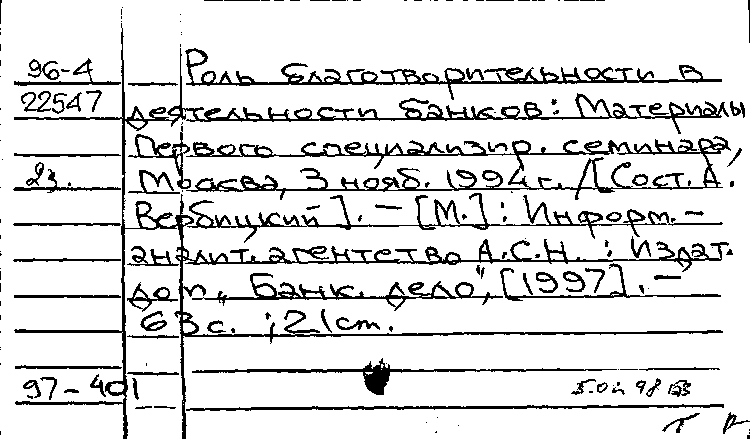 96-4 Роль благотворительности в
22547 деятельности банков: Материалы
Первого специализир. семинара,
Москва, 3 нояб. 1994 г. /[Сост. А.
Вербицкий]. - [М.]: Информ.-
аналит. агентство А.С.Н. : Издат.
дом „Банк. дело", [1997]. -
63 с. ; 21 cm.
97-401